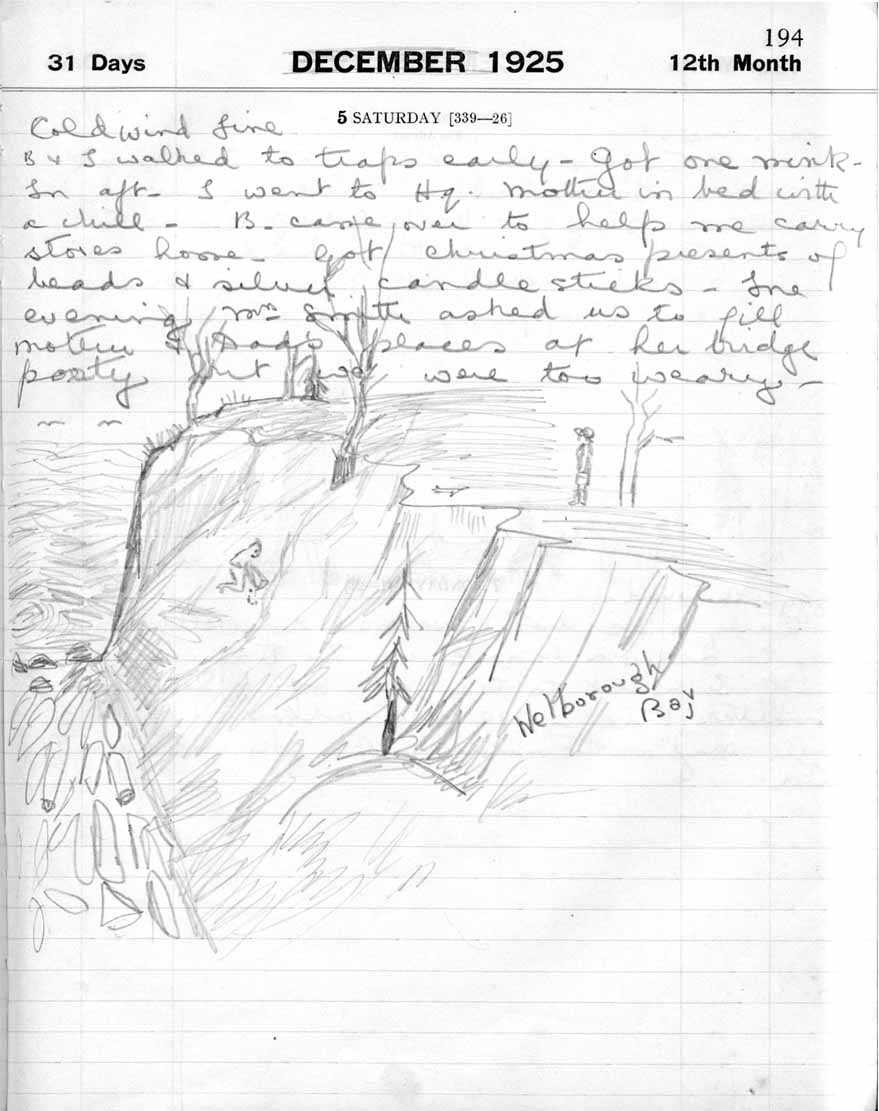 194
31 Days DECEMBER 1925 12th Month
5 SATURDAY [339—26]
Cold wind fine
B & I walked to traps early - Got one mink -
In aft - I went to Hq. Mother in bed with
a chill - B. came over to help me carry
stores home - Got Christmas presents of
beads & silver candle sticks - In
evening Mrs Smith asked us to fill
mother & Dad's places at her bridge
party but we were too weary -
Welborough
Bay